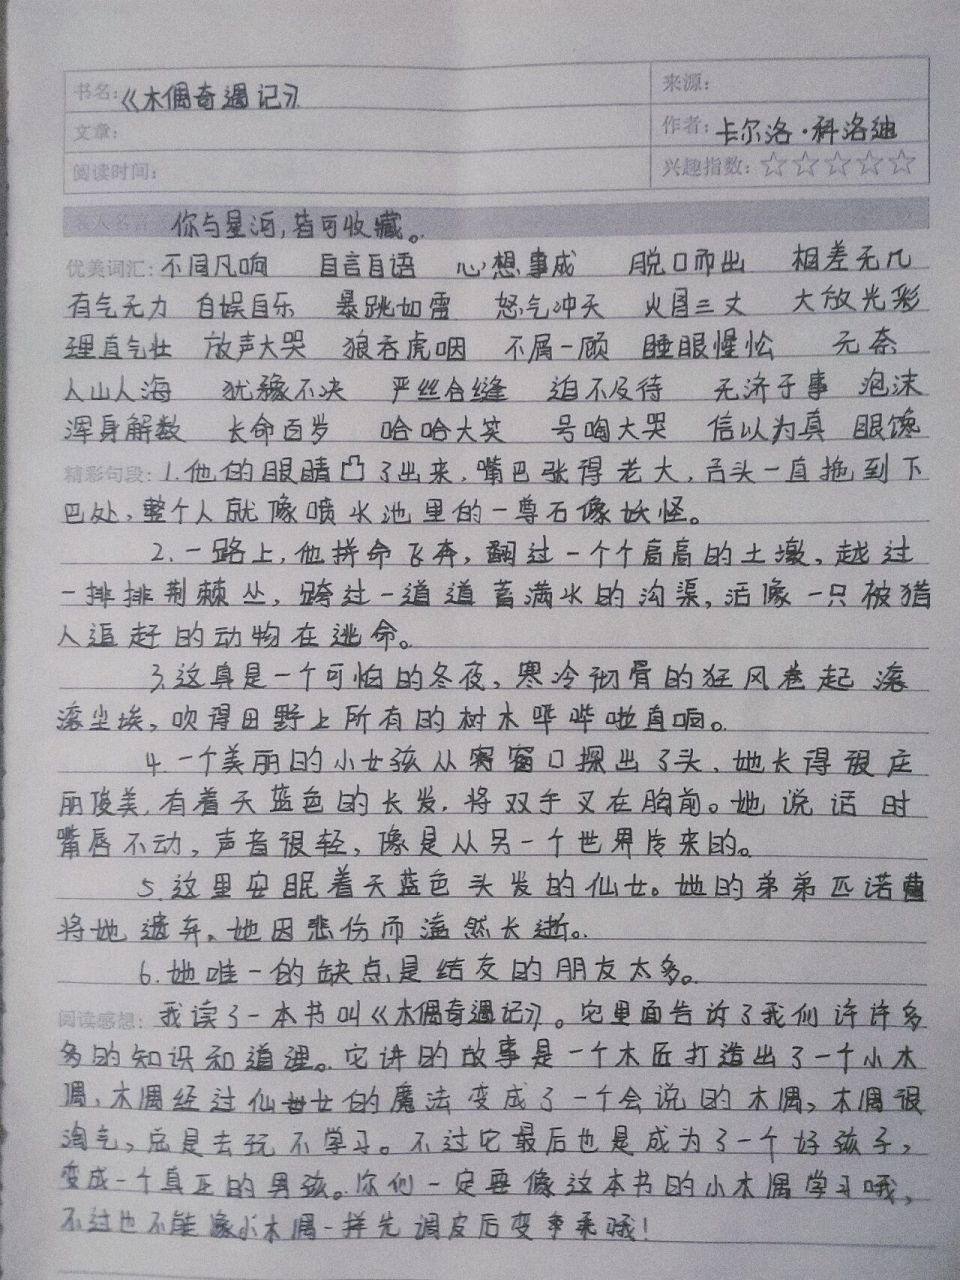 书名:《木偶奇遇记》 来源:
文章: 作者:卡尔洛·科洛迪
阅读时间: 兴趣指数:☆☆☆☆☆
名人名言 你与星河,皆可收藏。
优美词汇:不同凡响 自言自语 心想事成 脱口而出 相差无几
有气无力 自娱自乐 暴跳如雷 怒气冲天 火冒三丈 大放光彩
理直气壮 放声大哭 狼吞虎咽 不屑一顾 睡眼惺忪 无奈
人山人海 犹豫不决 严丝合缝 迫不及待 无济于事 泡沫
浑身解数 长命百岁 哈哈大笑 号啕大哭 信以为真 眼馋
精彩句段:1.他的眼睛凸了出来,嘴巴张得老大,舌头一直拖到下
巴处,整个人就像喷水池里的一尊石像妖怪。
2.一路上,他拼命飞奔,翻过一个个高高的土墩,越过
一排排荆棘丛,跨过一道道蓄满水的沟渠,活像一只被猎
人追赶的动物在逃命。
3.这真是一个可怕的冬夜,寒冷彻骨的狂风卷起滚
滚尘埃,吹得田野上所有的树木哗哗啦直响。
4.一个美丽的小女孩从窗口探出了头,她长得很庄
丽俊美,有着天蓝色的长发,将双手叉在胸前。她说话时
嘴唇不动,声音很轻,像是从另一个世界传来的。
5.这里安眠着天蓝色头发的仙女。她的弟弟匹诺曹
将她遗弃,她因悲伤而溘然长逝。
6.她唯一的缺点是结交的朋友太多。
阅读感想:我读了一本书叫《木偶奇遇记》。它里面告访了我们许许多
多的知识和道理。它讲的故事是一个木匠打造出了一个小木
偶,木偶经过仙女的魔法变成了一个会说的木偶,木偶很
淘气,总是去玩不学习。不过它最后也是成为了一个好孩子,
变成一个真正的男孩。你们一定要像这本书的小木偶学习哦,
不过也不能像小木偶一样先调皮后变乖哦!